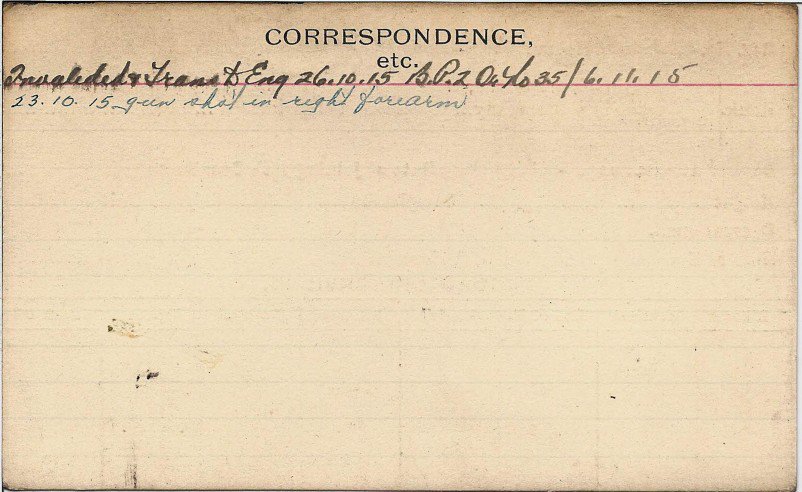 CORRESPONDENCE,
etc.
Invalided & Trans to Eng 26.10.15 B.P.2 O. No 35/6.11.15
23.10.15 gun shot in right forearm